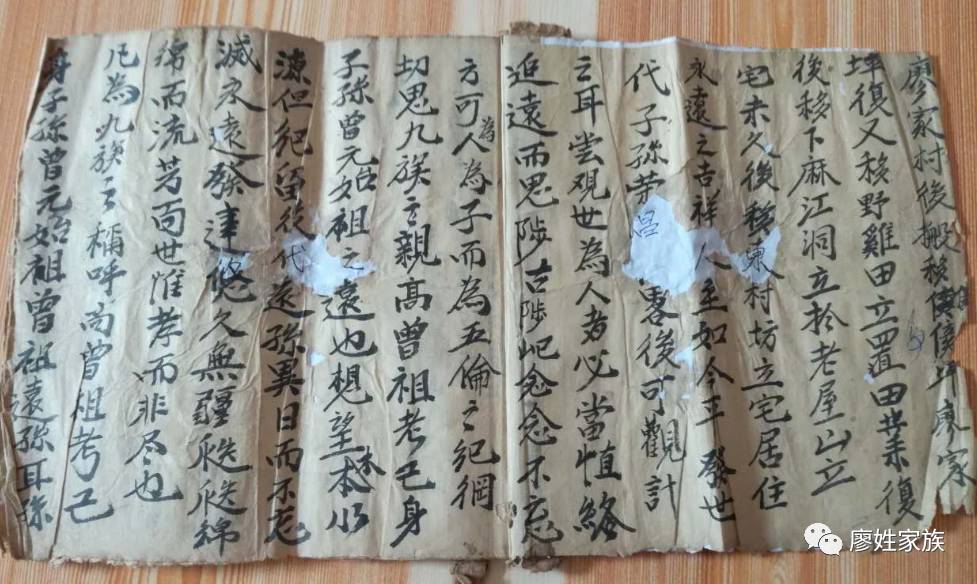 廖家村後搬移傍坪廖家
坪復又移野雞田立置田業復
後移下麻江洞立於老屋山立
宅未久後移東村坊立宅居住
永遠之吉祥人至如今平發世
代子孫荣昌畧後可觀計
之耳尝观世為人者必當慎終
追遠而思陟古陟屺念念不忘
方可為人為子而為五倫之纪綱
切思九族之親高曾祖考己身
子孫曾元始祖之遠也想望本水
源但纪留後代遠孫異日而不忘
滅永遠發達悠久無疆瓞瓞綿
綿而流芳百世惟孝而非尽也
凡為九族之稱呼高曾祖考己
身子孫曾元始祖曾祖遠孫耳孫
廖姓家族